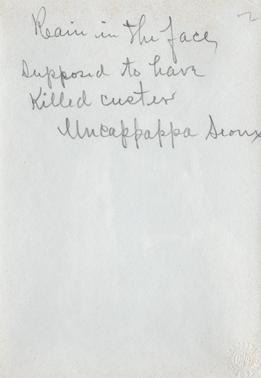 Rain in the face,
supposed to have
Killed custer
Uncappappa Sioux